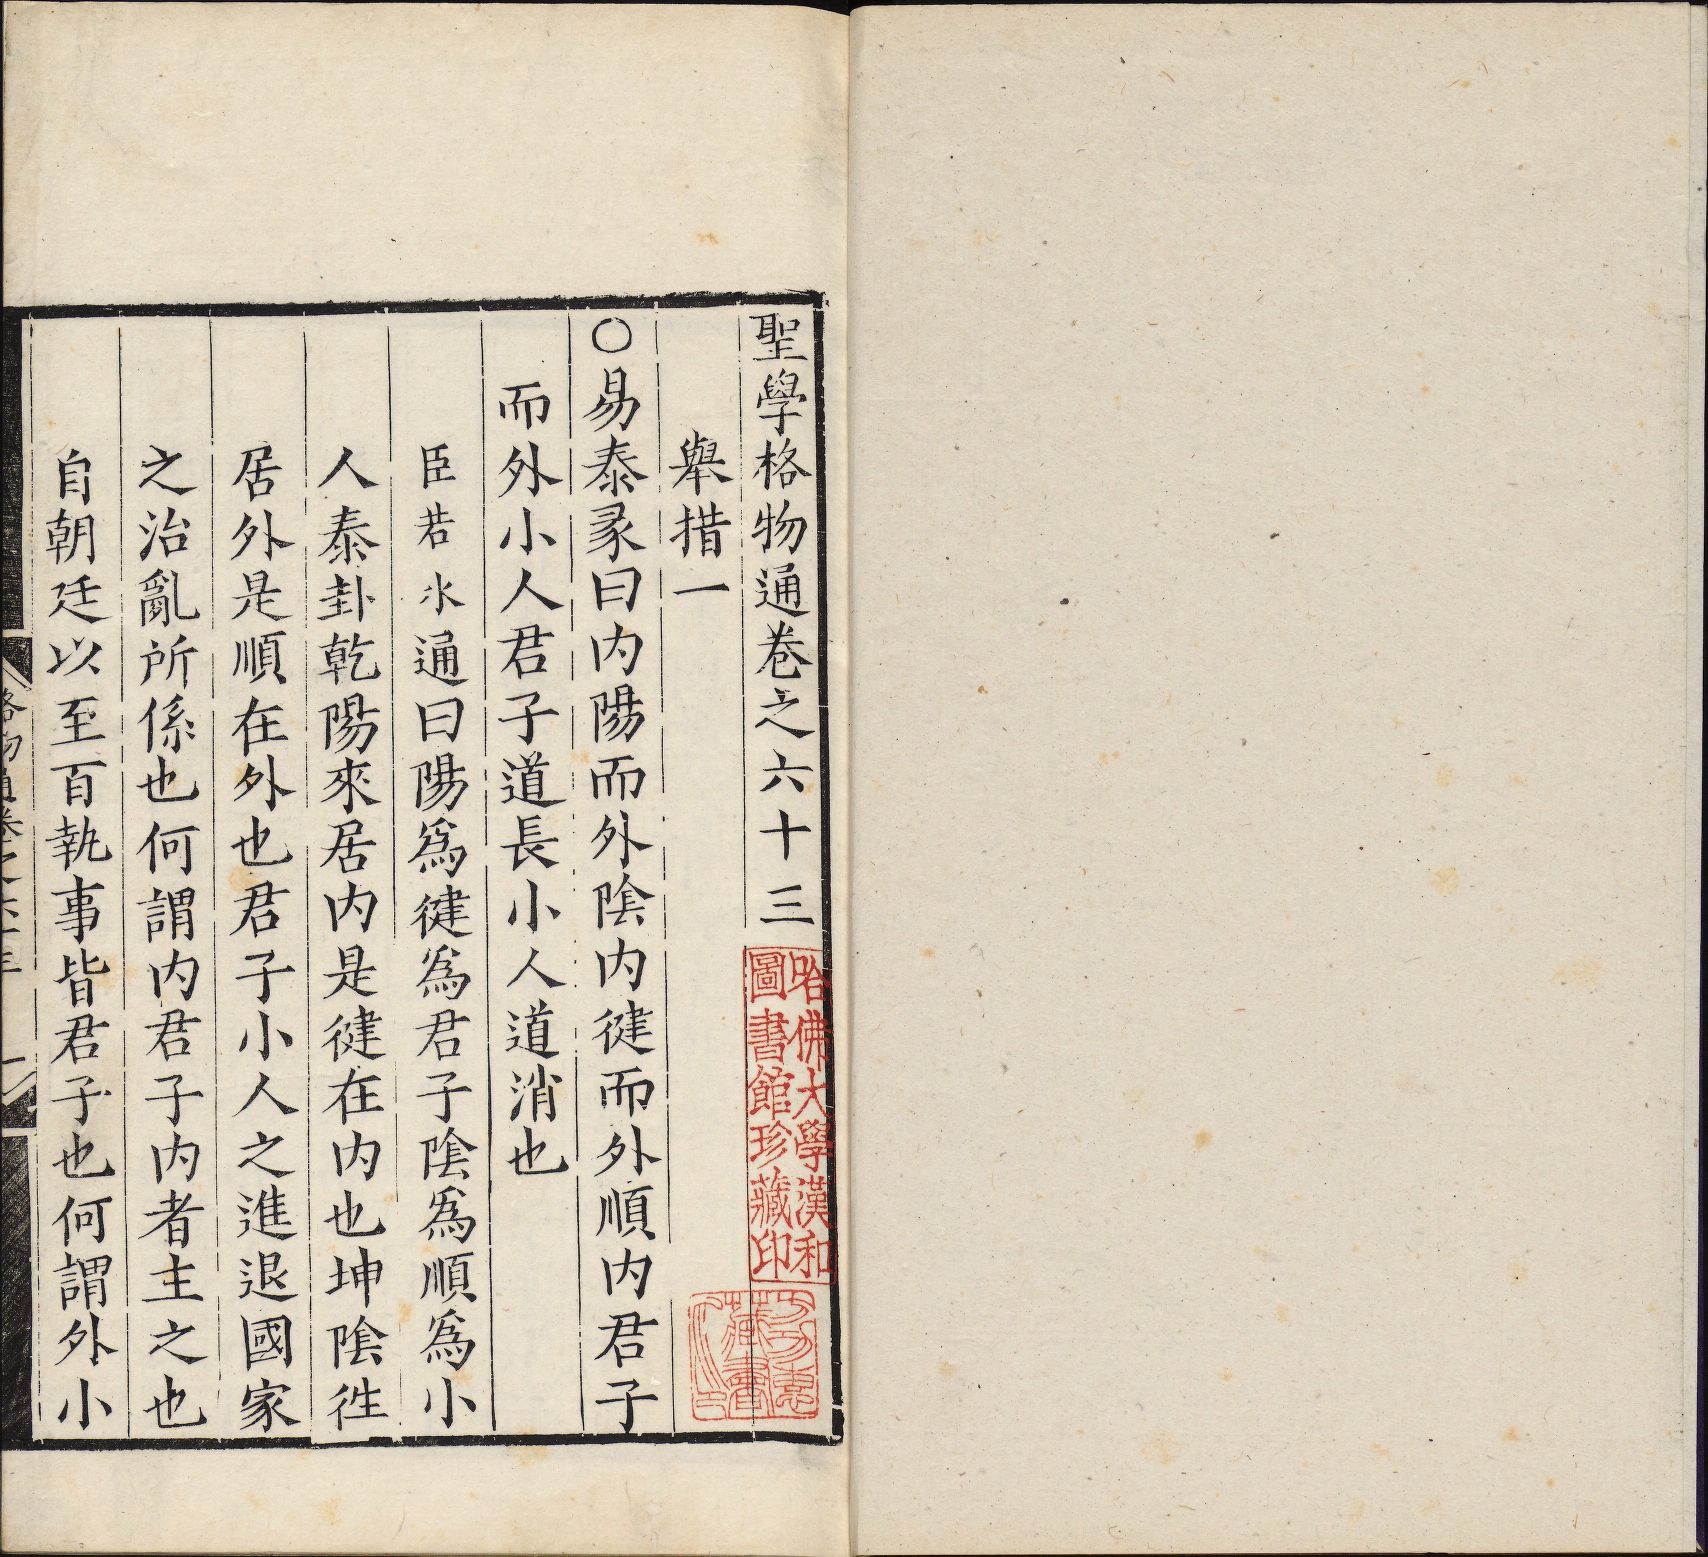 聖學格物通卷之六十三
舉措一
○易泰彖曰内陽而外陰内健而外順内君子
而外小人君子道長小人道消也
臣若水通曰陽爲健爲君子陰爲順爲小
人泰卦乾陽來居内是健在内也坤陰徃
居外是順在外也君子小人之進退國家
之治亂所係也何謂内君子内者主之也
自朝廷以至百執事皆君子也何謂外小
格物通卷之六十三
一
哈佛大學漢和
圖書館珍藏印
藏書